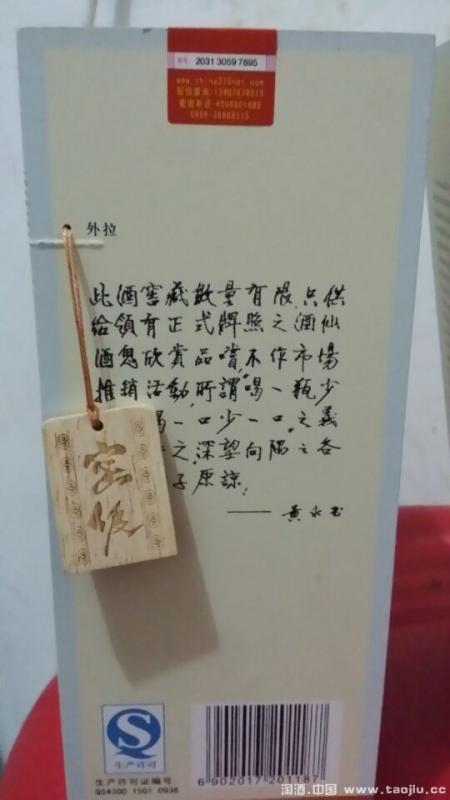 2031 3059 7895
外拉
此酒窖藏數量有限只供
给領有正式牌照之酒仙
酒鬼欣賞品嚐,不作市場
推銷活動,所謂喝一瓶少
喝一口少一口之義
之,深望向隅之各
子原諒
——黄永玉
生产许可
生产许可证编号
QS4300 1501 0936
6 902017 201187
淘酒.中国 www.taojiu.cc